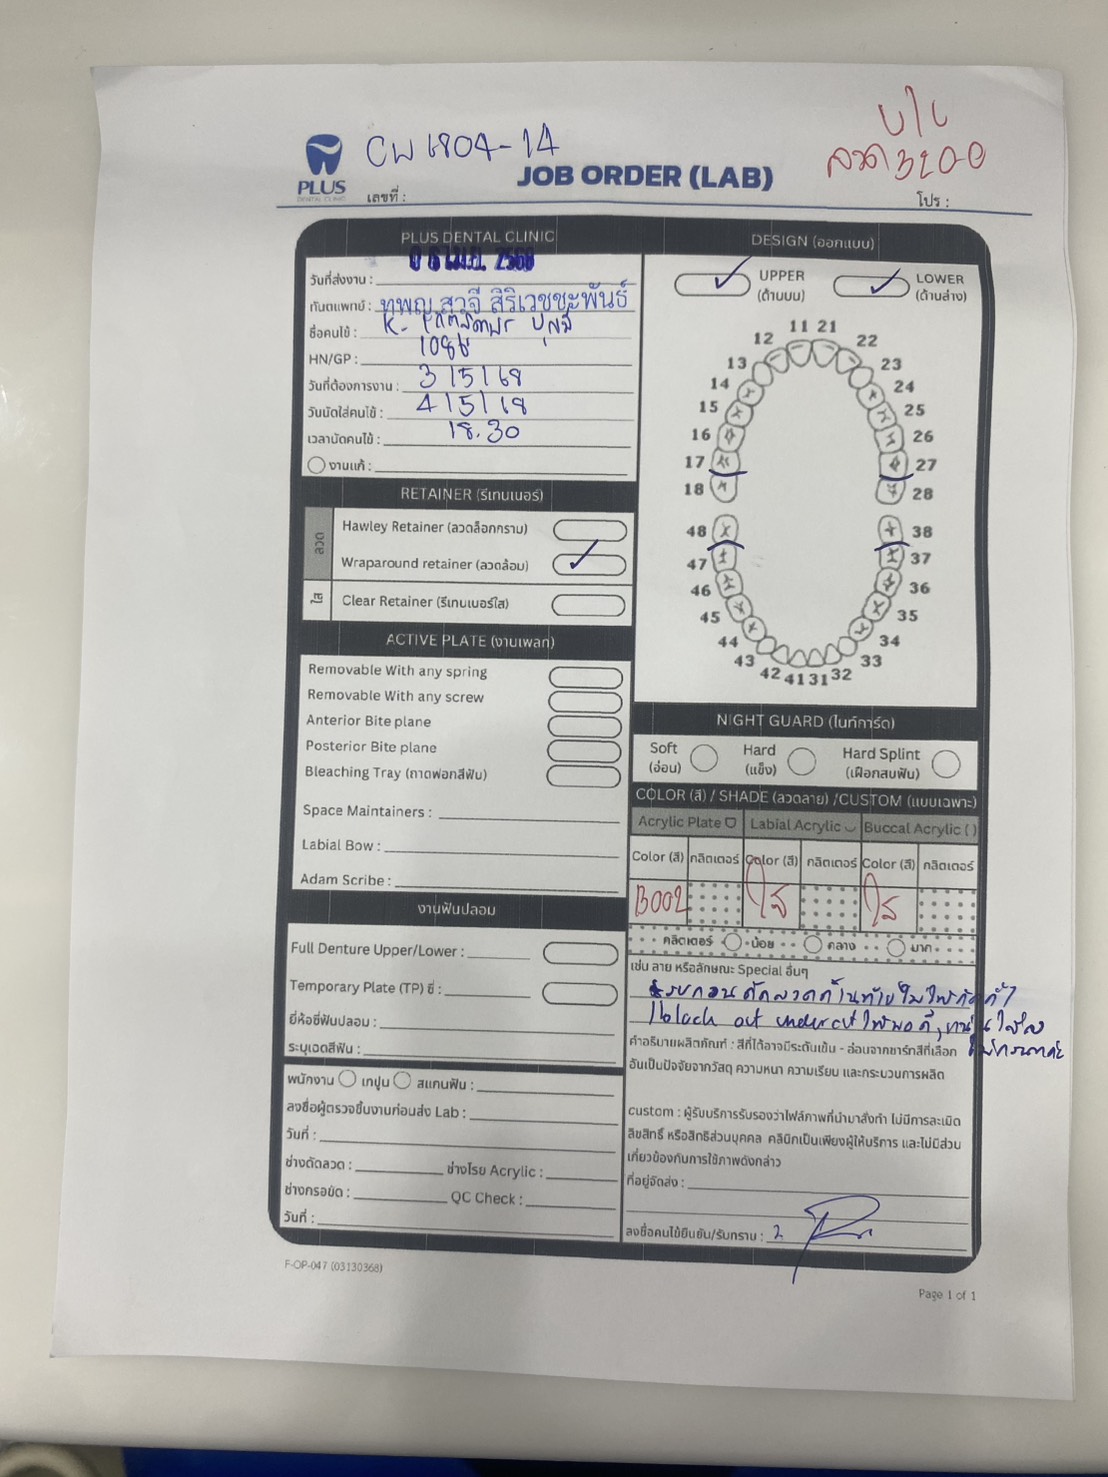 U/L
ลวด 3200
PLUS
DENTAL CLINIC
CW 6804-14
JOB ORDER (LAB)
เลขที่ :
โปร :
PLUS DENTAL CLINIC
วันที่ส่งงาน : เม.ย. 2568
ทันตแพทย์ : ทพญ.สุวจี สิริเวชชะพันธ์
ชื่อคนไข้ : K.
HN/GP :
วันที่ต้องการงาน : 3/5/68
วันนัดใส่คนไข้ : 4/5/68
เวลานัดคนไข้ : 18.30
งานแก้ :
RETAINER (รีเทนเนอร์)
ลวด
Hawley Retainer (ลวดล็อกกราม)
Wraparound retainer (ลวดล้อม)
ใส
Clear Retainer (รีเทนเนอร์ใส)
ACTIVE PLATE (งานเพลท)
Removable With any spring
Removable With any screw
Anterior Bite plane
Posterior Bite plane
Bleaching Tray (ถาดฟอกสีฟัน)
Space Maintainers :
Labial Bow :
Adam Scribe :
งานฟันปลอม
Full Denture Upper/Lower :
Temporary Plate (TP) ซี่ :
ยี่ห้อซี่ฟันปลอม :
ระบุเฉดสีฟัน :
พนักงาน เทปูน สแกนฟัน :
ลงชื่อผู้ตรวจชิ้นงานก่อนส่ง Lab :
วันที่ :
ช่างดัดลวด : ช่างโรย Acrylic :
ช่างกรอขัด : QC Check :
วันที่ :
F-OP-047 (03130368)
DESIGN (ออกแบบ)
UPPER
(ด้านบน)
LOWER
(ด้านล่าง)
11 21
12 22
13 23
14 24
15 25
16 26
17 27
18 28
48 38
47 37
46 36
45 35
44 34
43 33
42 41 31 32
NIGHT GUARD (ไนท์การ์ด)
Soft
(อ่อน)
Hard
(แข็ง)
Hard Splint
(เฝือกสบฟัน)
COLOR (สี) / SHADE (ลวดลาย) /CUSTOM (แบบเฉพาะ)
Acrylic Plate Labial Acrylic Buccal Acrylic ( )
Color (สี) กลิตเตอร์ Color (สี) กลิตเตอร์ Color (สี) กลิตเตอร์
B002 ใส ใส
กลิตเตอร์ น้อย กลาง มาก
เช่น ลาย หรือลักษณะ Special อื่นๆ
block out undercut ให้พอดี,
คำอธิบายผลิตภัณฑ์ : สีที่ได้อาจมีระดับเข้ม - อ่อนจากชาร์ทสีที่เลือก
อันเป็นปัจจัยจากวัสดุ ความหนา ความเรียบ และกระบวนการผลิต
custom : ผู้รับบริการรับรองว่าไฟล์ภาพที่นำมาสั่งทำ ไม่มีการละเมิด
ลิขสิทธิ์ หรือสิทธิส่วนบุคคล คลินิกเป็นเพียงผู้ให้บริการ และไม่มีส่วน
เกี่ยวข้องกับการใช้ภาพดังกล่าว
ที่อยู่จัดส่ง :
ลงชื่อคนไข้ยืนยัน/รับทราบ :
Page 1 of 1